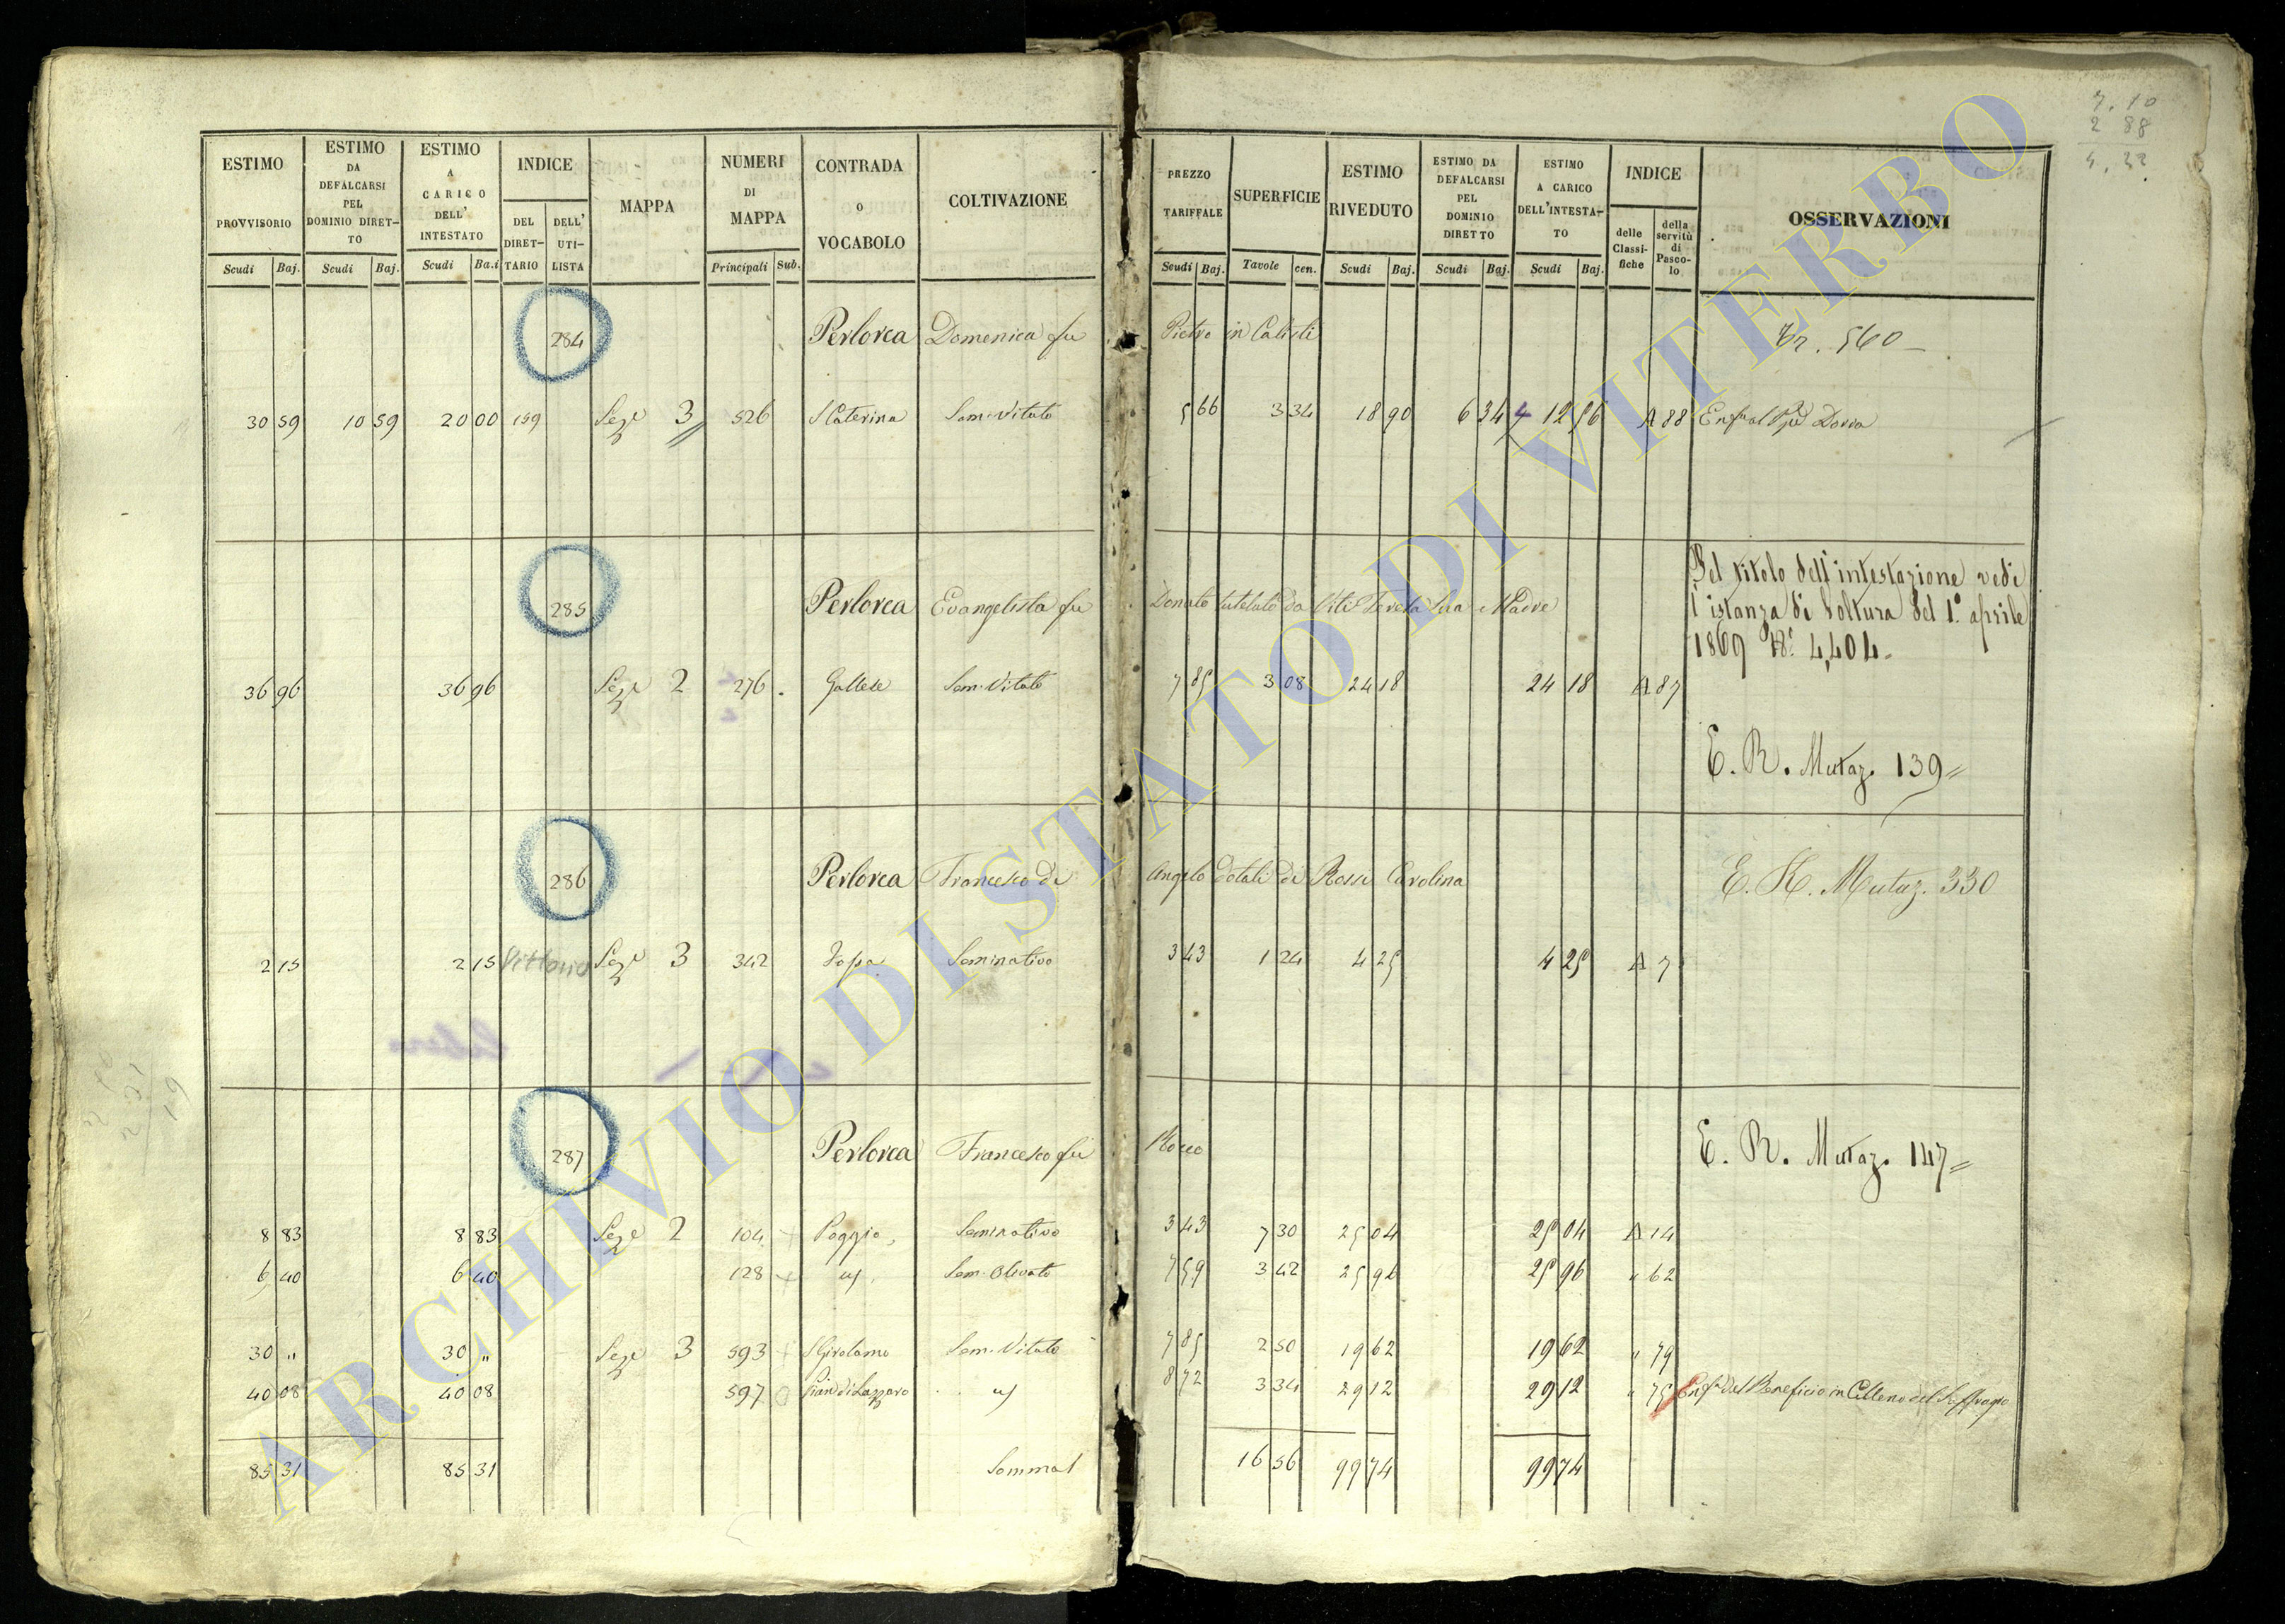 ESTIMO PROVVISORIO Scudi Baj.
ESTIMO DA DEFALCARSI PEL DOMINIO DIRETTO Scudi Baj.
ESTIMO A CARICO DELL' INTESTATO Scudi Ba.i
INDICE DEL DIRETTARIO DELL' UTILISTA
MAPPA
NUMERI DI MAPPA Principali Sub.
CONTRADA O VOCABOLO
COLTIVAZIONE
PREZZO TARIFFALE Scudi Baj.
SUPERFICIE Tavole cen.
ESTIMO RIVEDUTO Scudi Baj.
ESTIMO DA DEFALCARSI PEL DOMINIO DIRETTO Scudi Baj.
ESTIMO A CARICO DELL'INTESTATO Scudi Baj.
INDICE delle Classifiche della servitù di Pascolo
OSSERVAZIONI
7. 10
2 88
4. 22
284 Perlorca Domenica fu Pietro in Calisti 560
30 59 10 59 20 00 159 Seze 3 526 S Caterina Sem. Vitato 5 66 3 34 18 90 6 34 12 56 A 88
285 Perlorca Evangelista fu Donato tutelato da Viti Teresa Sua Madre
Pel titolo dell'intestazione vedi
l'istanza di Voltura del 1.° aprile
1869 N.° 4,404.
36 96 36 96 Seze 2 276 Gallese Sem. Vitato 7 85 3 08 24 18 24 18 A 87
E. R. Mutaz. 139
286 Perlorca Francesco di Angelo dotali di Rossi Carolina E. R. Mutaz. 330
2 15 2 15 Vittorio Seze 3 342 Seminativo 3 43 1 24 4 25 4 25 A 7
287 Perlorca Francesco fu Rocco E. R. Mutaz. 147
8 83 8 83 Seze 2 104 Poggio Seminativo 3 43 7 30 25 04 25 04 A 14
6 40 6 40 128 Sem. Olivato 7 59 3 42 25 96 25 96 " 62
30 " 30 " Seze 3 593 S Girolamo Sem. Vitato 7 85 2 50 19 62 19 62 " 79
40 08 40 08 597 Pian di Lazzaro 8 72 3 34 29 12 29 12 " 75 del Beneficio in Celleno del Suffragio
85 31 85 31 16 56 99 74 99 74
ARCHIVIO DI STATO DI VITERBO